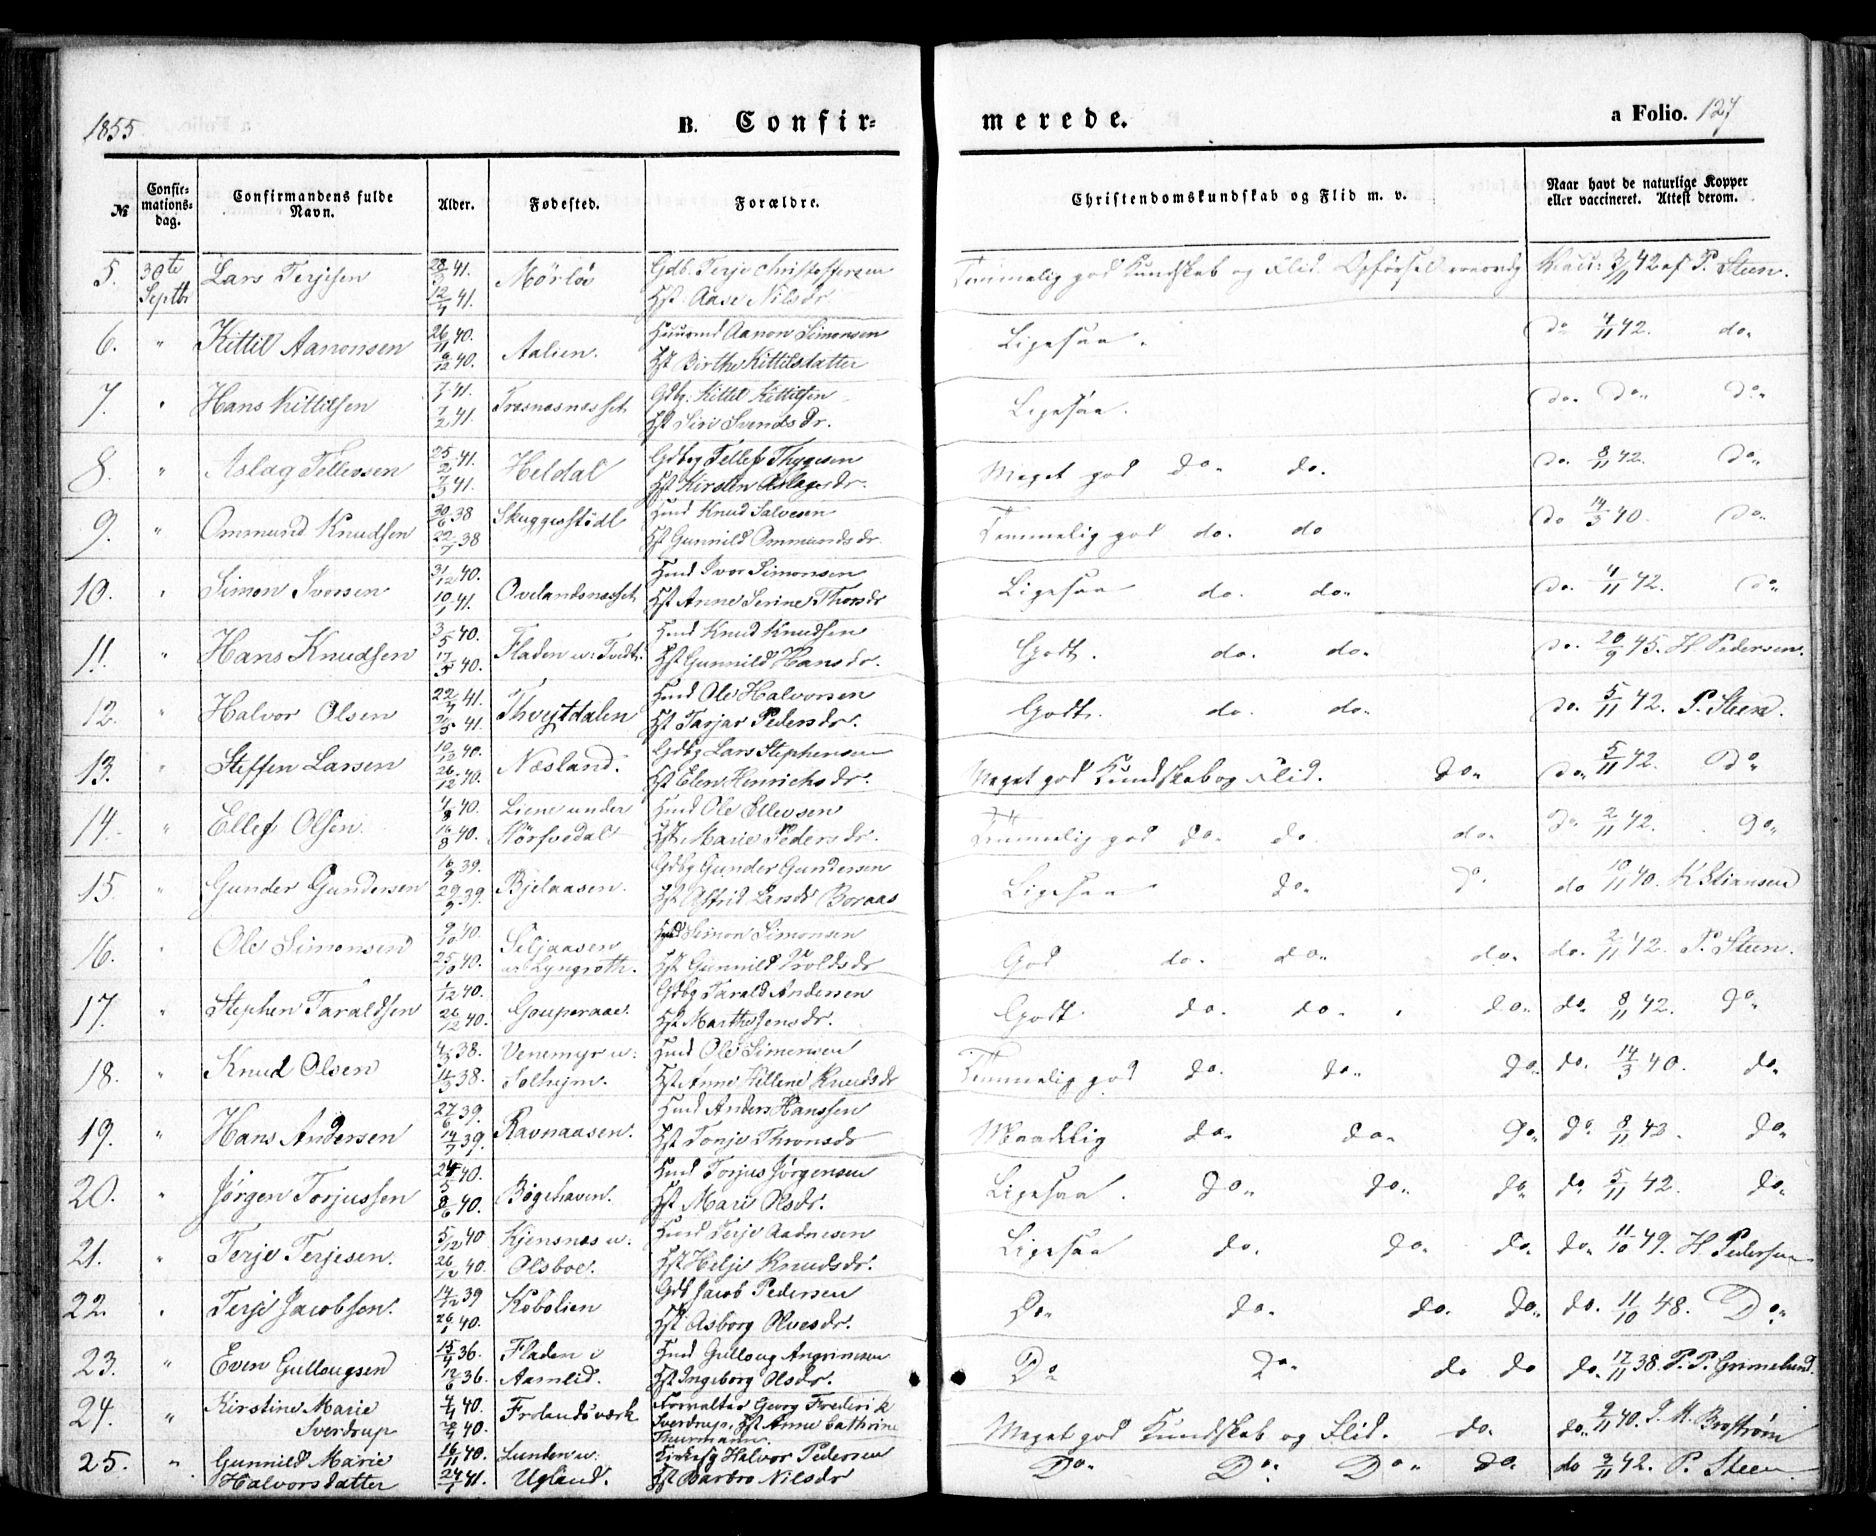 1855
B. Confirmerede.
a Folio. 127
№
Confirmationsdag.
Confirmandens fulde Navn.
Alder.
Fødested.
Forældre.
Christendomskundskab og Flid m. v.
Naar havt de naturlige Kopper eller vaccineret. Attest derom.
5. 30te Septbr Lars Terjesen 41. 12/4 41. Mørløs Gdb. Terje Christoffersen Hst. Aase Nilsdr. Temmelig god Kundskab og Flid. Opførsel Vacc: 3/11 42 af P. Steen.
6. " Kittil Aanonsen 26/11 40. 6/12 40. Aalien. Huusmd Aanon Simonsen Hst Birthe Kittilsdatter Ligesaa. do 4/11 42. do"
7. " Hans Kittilsen 41. 7/2 41. Træsnæsset Gdbg. Kittil Kittilsen Hst Siri Svendsdr. Ligesaa. do. do" do"
8. " Aslag Tellevsen 25/2 41. 7/3 41. Heldal Gdbg Tellef Thygesen Hst Kirsten Aslagsdr. Meget god do" do. do. 8/11 42. do"
9. " Ommund Knudsen 30/6 38 22/7 38 Skuggestødl Hmd Knud Salvesen Hst Gunnild Ommundsdr. Temmelig god do. do do 14/3 40. do"
10. " Simon Iversen 31/12 40. 10/1 41. Ovelandsnæsset Hmd Iver Simonsen Hst Anne Serine Thorsdr Ligesaa do. do" do. 4/11 42. do"
11. " Hans Knudsen 3/5 40. 17/5 40. Fladen u: Tvedt. Hmd Knud Knudsen Hst Gunnild Hansdr. Godt. do. do" do. 20/9 45. H Pedersen.
12. " Halvor Olsen 22/4 41. 41. Thveitdalen Hmd Ole Halvorsen Hst Tarjar Pedersdr. Godt. do. do" do. 5/11 42. P. Steen.
13. " Steffen Larsen 10/12 40. 26/12 40. Næsland. Gdbg Lars Stephensen Hst Elen Henrichsdr. Meget god Kundskab og Flid. do" do" 5/11 42. do"
14. " Ellef Olsen. 4/8 40. 16/8 40. Liene under Nørfvedal Hmd Ole Ellevsen Hst Marie Pedersdr. Temmelig god do" do. do" do" 2/11 42. do"
15. " Gunder Gundersen 16/9 39. 29/9 39. Bjelaasen. Gdbg Gunder Gundersen Hst Astrid Larsdr Boraas Ligesaa do" do. do 10/11 40. K Stiansen
16. " Ole Simonsen 9/10 40. 25/10 40. Seljaasen u: Lyngroth. Hmd Simon Simonsen Hst Gunnild Troldsdr God do" do" do" do. 2/11 42. P. Steen.
17. " Stephen Taraldsen 1/12 40. 26/12 40. Gauperaae. Gdbg Tarald Andersen Hst Marthe Jensdr. Godt. do. do. do" do. 8/11 42. do
18. " Knud Olsen 4/3 38. 14/3 38. Venemyr u: Solhejm. Hmd Ole Simonsen Hst Anne Hellene Knudsdr Temmelig god do. do" do" do. 14/3 40. do"
19. " Hans Andersen 27/6 39. 14/7 39. Ravnaasen. Hmd Anders Hanssen Hst Tonje Thronsdr Maadelig do" do" do" do. 8/11 42. do"
20. " Jørgen Torjussen 24/5 40. 8/6 40. Bøgehaven. Hmd Torjus Jørgensen Hst Mari Olsdr. Ligesaa. do" do" do" do" 5/11 42. do"
21. " Terje Terjesen. 5/12 40 26/12 40. Kjensnæs u: Olsboe. Hmd Terje Aadnesen Hst Helje Knudsdr. Ligesaa do. do" do" do" 11/10 49. H Pedersen
22. " Terje Jacobsen. 14/12 39 26/1 40. Kobolien Gdb Jacob Pedersen Hst Asborg Olvesdr. Do" do" do. do" do. 11/10 48. Do"
23. " Even Gullougsen 15/4 36. 12/6 36. Fladen u Aamlid. Hmd Gulloug Angrimsen Hst Ingeborg Olsdr. Do do" do do do. 17/11 38. P. P. Grimelund.
24. " Kirstine Marie Sverdrup 4/4 40. 40. Frolandsværk Forvalter Georg Frederik Sverdrup, Hst Anne Cathrine Thurmann. Meget god Kundskab og Flid. do. do" 2/11 40. J. M. Brostrøm
25. " Gunnild Marie Halvorsdatter 16/11 40. 24/1 41. Lunden u: Ugland. Kirkesg Halvor Pedersen Hst Barbro Nilsdr Do" Do" Do" do" do 2/11 42. P. Steen